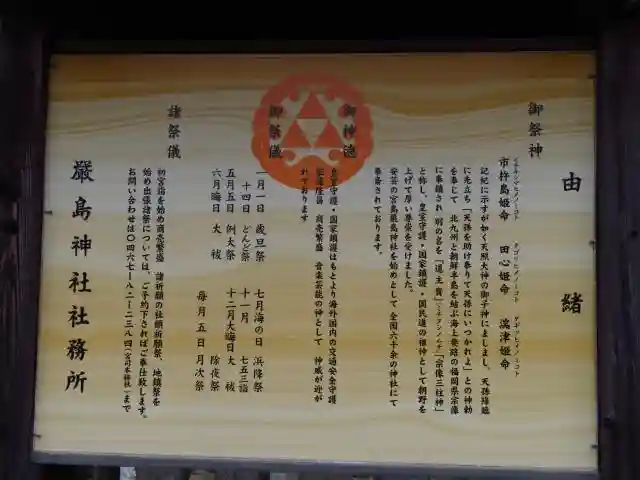 由緒
御祭神
市杵島姫命 田心姫命 湍津姫命
イチキシマヒメノミコト タゴリヒメノミコト タギツヒメノミコト
記紀に示すが如く天照大神の御子神にましまし、天孫降臨
に先立ち「天孫を助け奉りて天孫にいつかれよ」との神勅
を奉じて 北九州と朝鮮半島を結ぶ海上要路の福岡県宗像
に奉鎮され 別の名を「道主貴」(ミチヌシノムチ)「宗像三柱神」
と称し、皇室守護・国家鎮護・国民道の祖神として朝野を
上げて厚い尊崇を受けました。
安芸の宮島厳島神社を始めとして 全国六千余の神社にて
奉斎されております。
御神徳
皇室守護・国家鎮護はもとより海外国内の交通安全守護
商売繁盛 音楽芸能の神として 神威が迎が
れております
御祭儀
一月一日 歳旦祭 七月海の日 浜降祭
十四日 どんど祭 十一月 七五三詣
五月五日 例大祭 十二月大晦日 大祓
六月晦日 大祓 除夜祭
毎月五日 月次祭
諸祭儀
初宮詣を始め商売繁盛 諸祈願の社頭祈願祭、地鎮祭を
始め出張諸祭については、ご予約下さればご奉仕致します。
お問い合わせは〇四六七-八二-二三八四(宮司本務神社)まで
厳島神社社務所